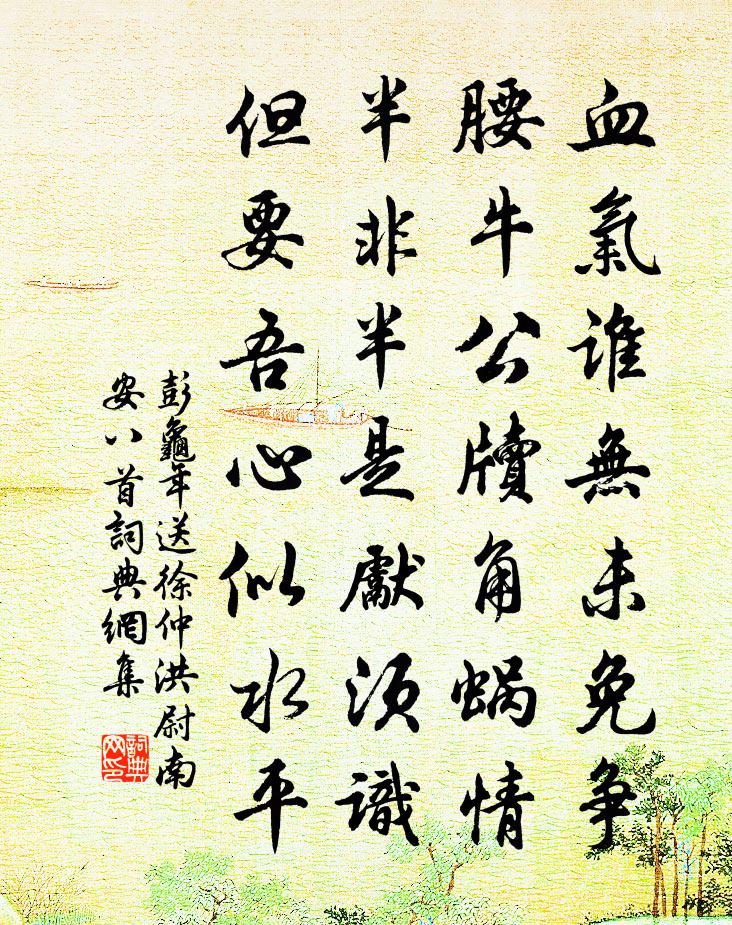 血氣誰無未免争
腰牛公牘角蝸情
半非半是獻須識
但要吾心似水平
彭龜年送徐仲洪尉南
安八首詞典網集
詞典网印